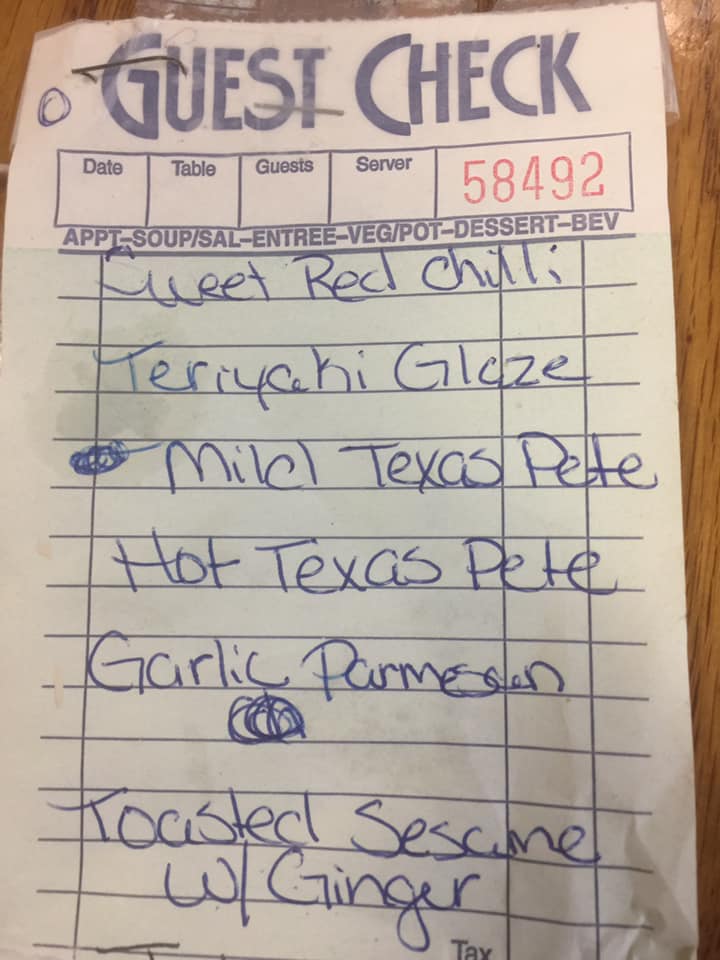 GUEST CHECK
Date Table Guests Server 58492
APPT-SOUP/SAL-ENTREE-VEG/POT-DESSERT-BEV
Sweet Red Chilli
Teriyaki Glaze
Mild Texas Pete
Hot Texas Pete
Garlic Parmesan
Toasted Sesame
W/ Ginger
Tax